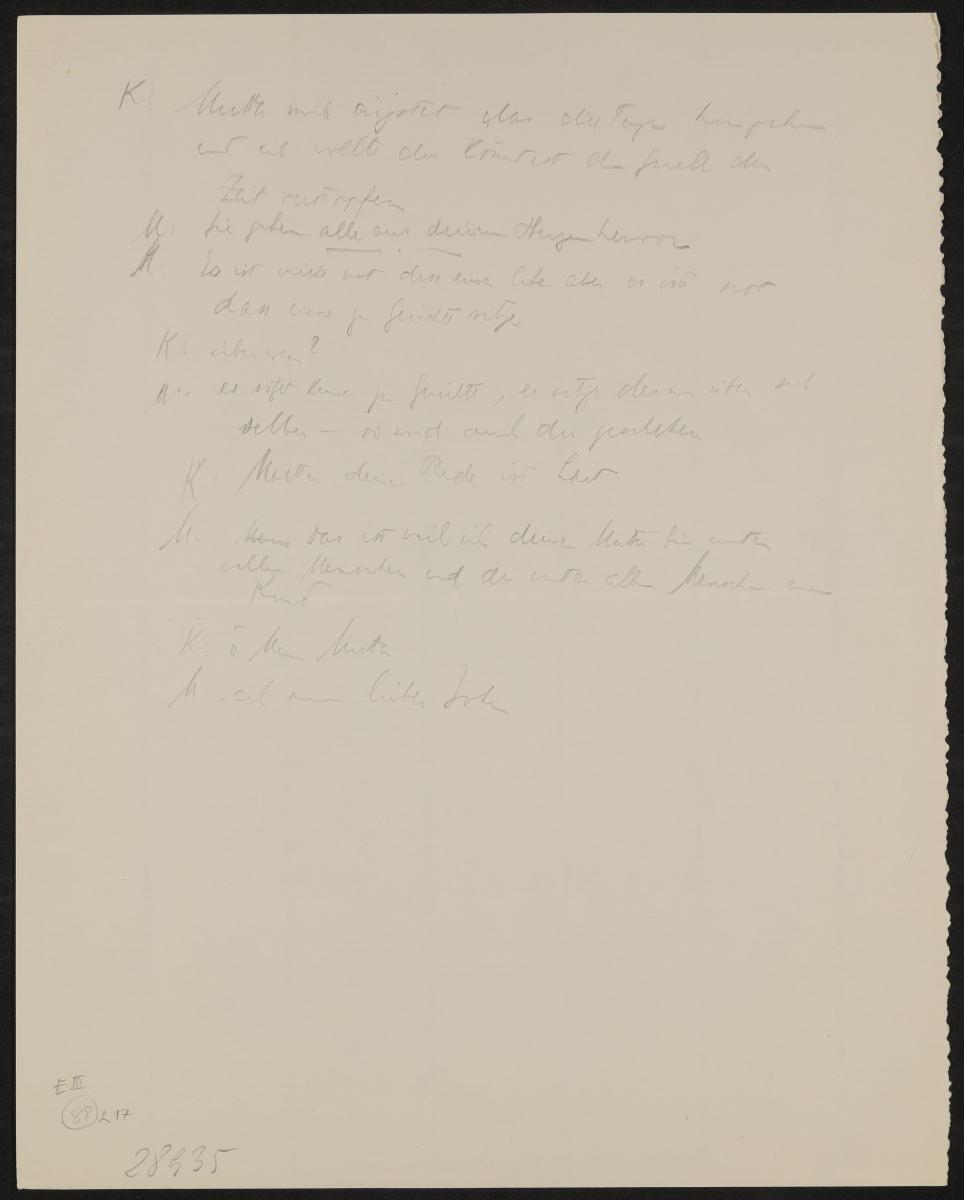 K: Mutter mich ängstet dass die Tage hingehen
und ich wollte du könntest den Quell der
Zeit verstopfen
M: Sie gehen alle aus deinem Herzen hervor
M: Es ist nicht not dass einer lebe aber es ist not
dass einer zu Gericht sitze
K: über wen?
M: es sitzt keiner zu Gericht, er sitze denn über sich
selber – so wird auch dir geschehen
K Mutter deine Rede ist hart
M. Mein Das ist weil ich deine Mutter bin unter
allen Menschen und du unter allen Menschen mein
Kind
K: o Mein Mutter
M. ach mein liebes
E III
88 217
28435